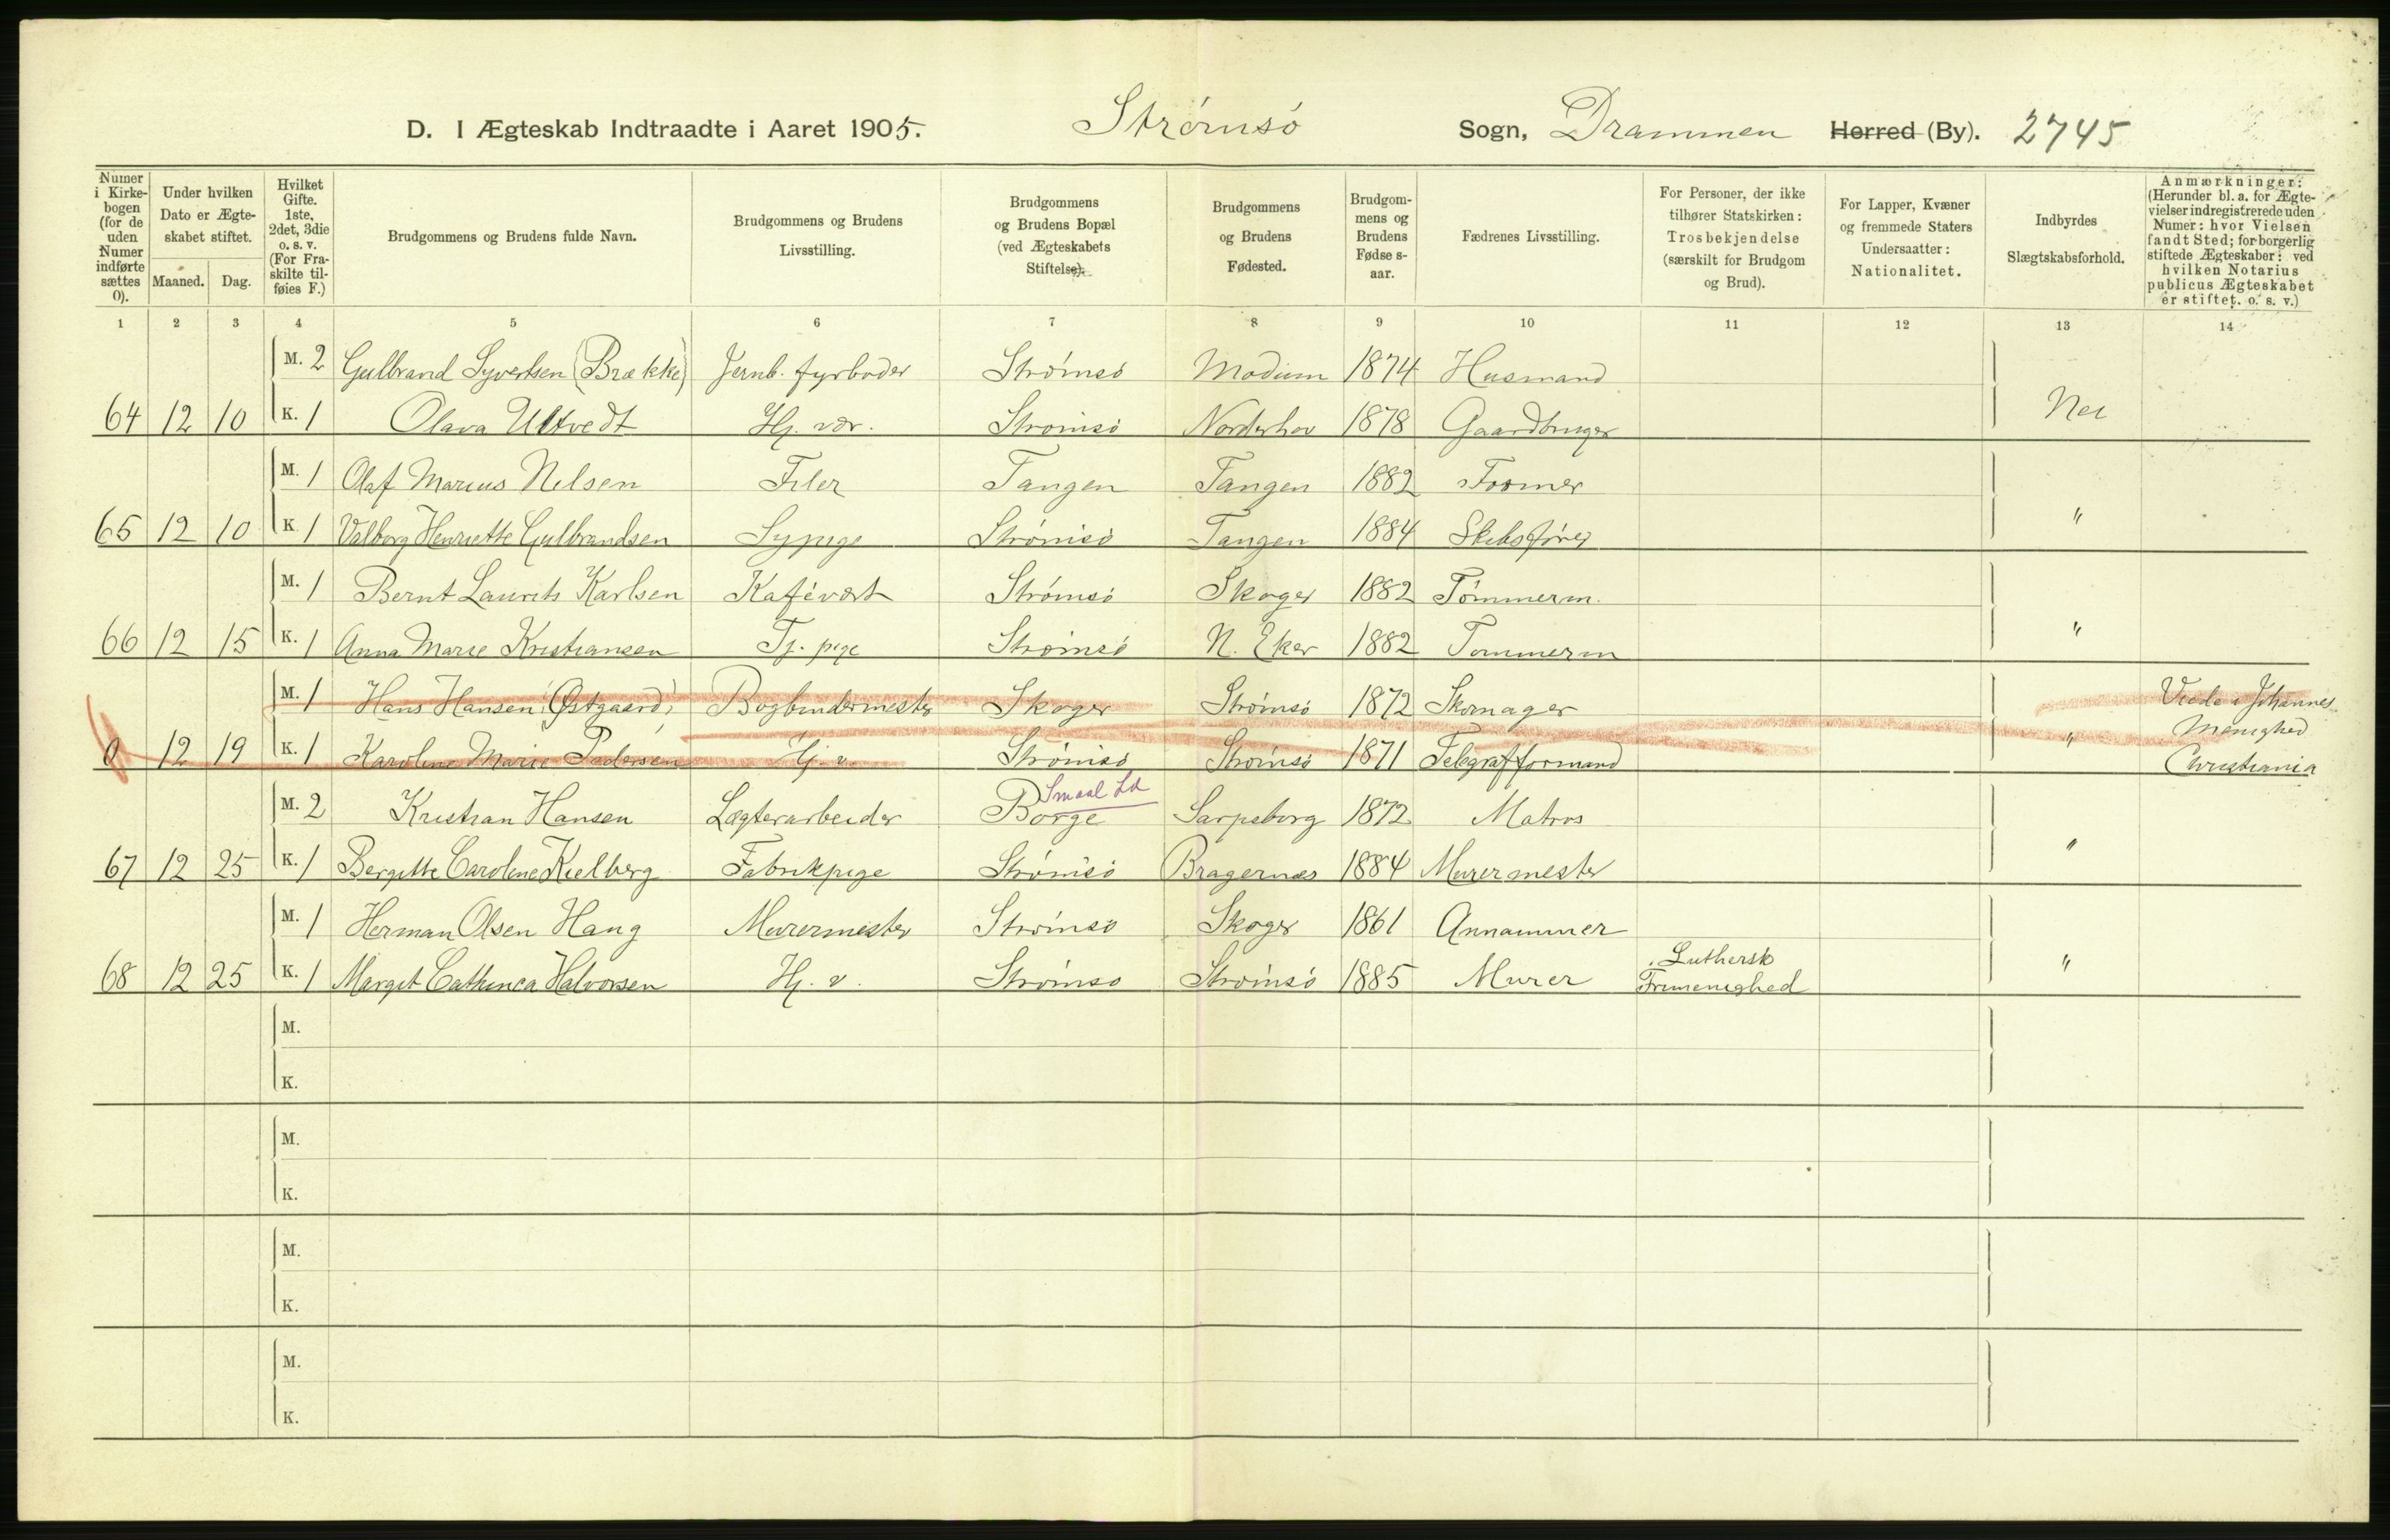 D. I Ægteskab Indtraadte i Aaret 1905. Strømsö Sogn, Drammen Herred (By). 2745
Numer i Kirkebogen (for de uden Numer indførte sættes 0).
Under hvilken Dato er Ægteskabet stiftet.
Maaned. Dag.
Hvilket Gifte. 1ste, 2det, 3die o. s. v. (For Fraskilte tilføies F.)
Brudgommens og Brudens fulde Navn.
Brudgommens og Brudens Livsstilling.
Brudgommens og Brudens Bopæl (ved Ægteskabets Stiftelse).
Brudgommens og Brudens Fødested.
Brudgommens og Brudens Fødselsaar.
Fædrenes Livsstilling.
For Personer, der ikke tilhører Statskirken: Trosbekjendelse (særskilt for Brudgom og Brud).
For Lapper, Kvæner og fremmede Staters Undersaatter: Nationalitet.
Indbyrdes Slægtskabsforhold.
Anmærkninger: (Herunder bl. a. for Ægtevielser indregistrerede uden Numer: hvor Vielsen fandt Sted; for borgerlig stiftede Ægteskaber: ved hvilken Notarius publicus Ægteskabet er stiftet. o. s. v.)
1 2 3 4 5 6 7 8 9 10 11 12 13 14
M. 2 Gulbrand Syvertsen (Brække) Jernb. fyrbøder Strömsö Modum 1874 Husmand
64 12 10 K. 1 Olava Ultvedt Hj. vær. Strömsö Norderhov 1878 Gaardbruger Nei
M. 1 Olaf Marius Nilsen Filer Tangen Tangen 1882 Former
65 12 10 K. 1 Valborg Henriette Gulbrandsen Sypige Strömsö Tangen 1884 Skibsförer "
M. 1 Bernt Laurits Karlsen Kafévært Strömsö Skoger 1882 Tömmerm.
66 12 15 K. 1 Anna Marie Kristiansen Tj. pige Strömsö N. Eker 1882 Tömmerm "
M. 1 Hans Hansen (Østgaard) Bogbindermester Skoger Strömsö 1872 Skomager Viede i Johannes
0 12 19 K. 1 Karoline Marie Pedersen Hj. v. Strömsö Strömsö 1871 Telegrafformand " Menighed
Christiania
Smaal
M. 2 Kristian Hansen Lægterarbeider Borge Sarpsborg 1872 Matros
67 12 25 K. 1 Bergitte Caroline Kielberg Fabrikpige Strömsö Bragernæs 1884 Murermester "
M. 1 Herman Olsen Haug Murermester Strömsö Skoger 1861 Annammer
68 12 25 K. 1 Margit Cathinca Halvorsen Hj. v. Strömsö Strömsö 1885 Murer Luthersk Frimenighed "
M.
K.
M.
K.
M.
K.
M.
K.